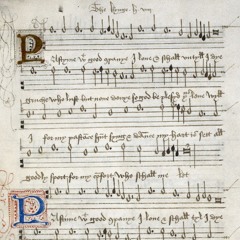 The kynge h viij
Pastyme wt good companye I love & schall untyll I dye
gruche who lust but none denye so god be plesyd thus leve wyll
I for my pastance hunt syng & daunce my hart is sett all
goodly sport for my comfort who schall me let
Pastyme wt good companye I love & schall untyll I dye